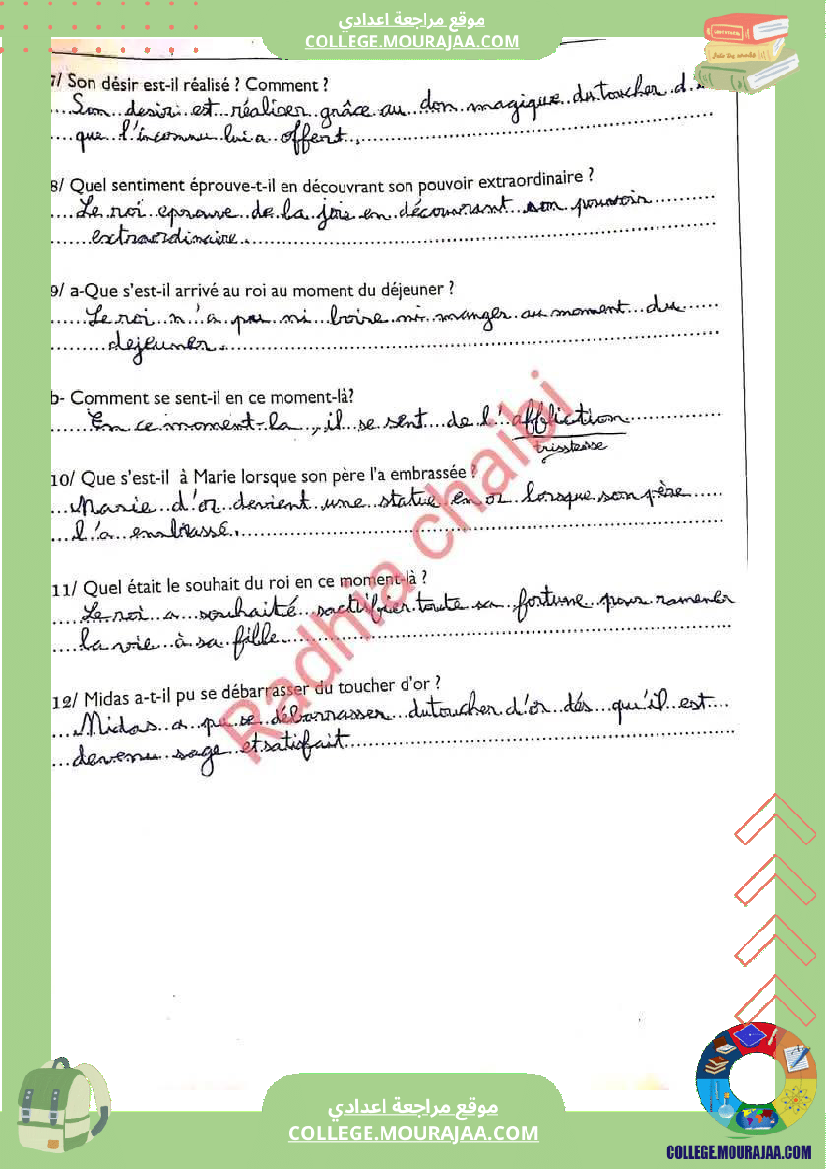 موقع مراجعة اعدادي
COLLEGE.MOURAJAA.COM
7/ Son désir est-il réalisé ? Comment ?
Son desir est réaliser grâce au don magique du toucher d
que l'inconnu lui a offert.
8/ Quel sentiment éprouve-t-il en découvrant son pouvoir extraordinaire ?
Le roi eprouve de la joie en découvrant son pouvoir
extraordinaire.
9/ a-Que s'est-il arrivé au roi au moment du déjeuner ?
Le roi n'a pu ni boire ni manger au moment du
dejeuner.
b- Comment se sent-il en ce moment-là?
En ce moment-la, il se sent de l'affliction
trisstesse
10/ Que s'est-il à Marie lorsque son père l'a embrassée ?
Marie d'or devient une statue en or lorsque son père
l'a embrassé.
11/ Quel était le souhait du roi en ce moment-là ?
Le roi a souhaité toute sa fortune pour ramener
la vie à sa fille
12/ Midas a-t-il pu se débarrasser du toucher d'or ?
Midas a pu se débarrasser du toucher d'or dés qu'il est
devenu sage et satisfait
Radhia chaibi
موقع مراجعة اعدادي
COLLEGE.MOURAJAA.COM
COLLEGE.MOURAJAA.COM